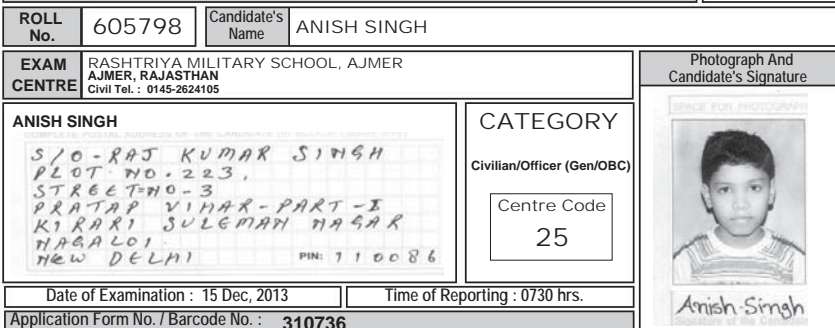 ROLL No. 605798 Candidate's Name ANISH SINGH
EXAM CENTRE RASHTRIYA MILITARY SCHOOL, AJMER
AJMER, RAJASTHAN
Civil Tel. : 0145-2624105
Photograph And
Candidate's Signature
SPACE FOR PHOTOGRAPH
ANISH SINGH
COMPLETE POSTAL ADDRESS OF THE CANDIDATE
S/O-RAJ KUMAR SINGH
PLOT NO.223,
STREET=NO-3
PRATAP VIHAR-PART-I
KIRARI SULEMAN NAGAR
NAGALOI
NEW DELHI PIN: 110086
CATEGORY
Civilian/Officer (Gen/OBC)
Centre Code
25
Anish-Singh
Signature of the Candidate
Date of Examination : 15 Dec, 2013 Time of Reporting : 0730 hrs.
Application Form No. / Barcode No. : 310736